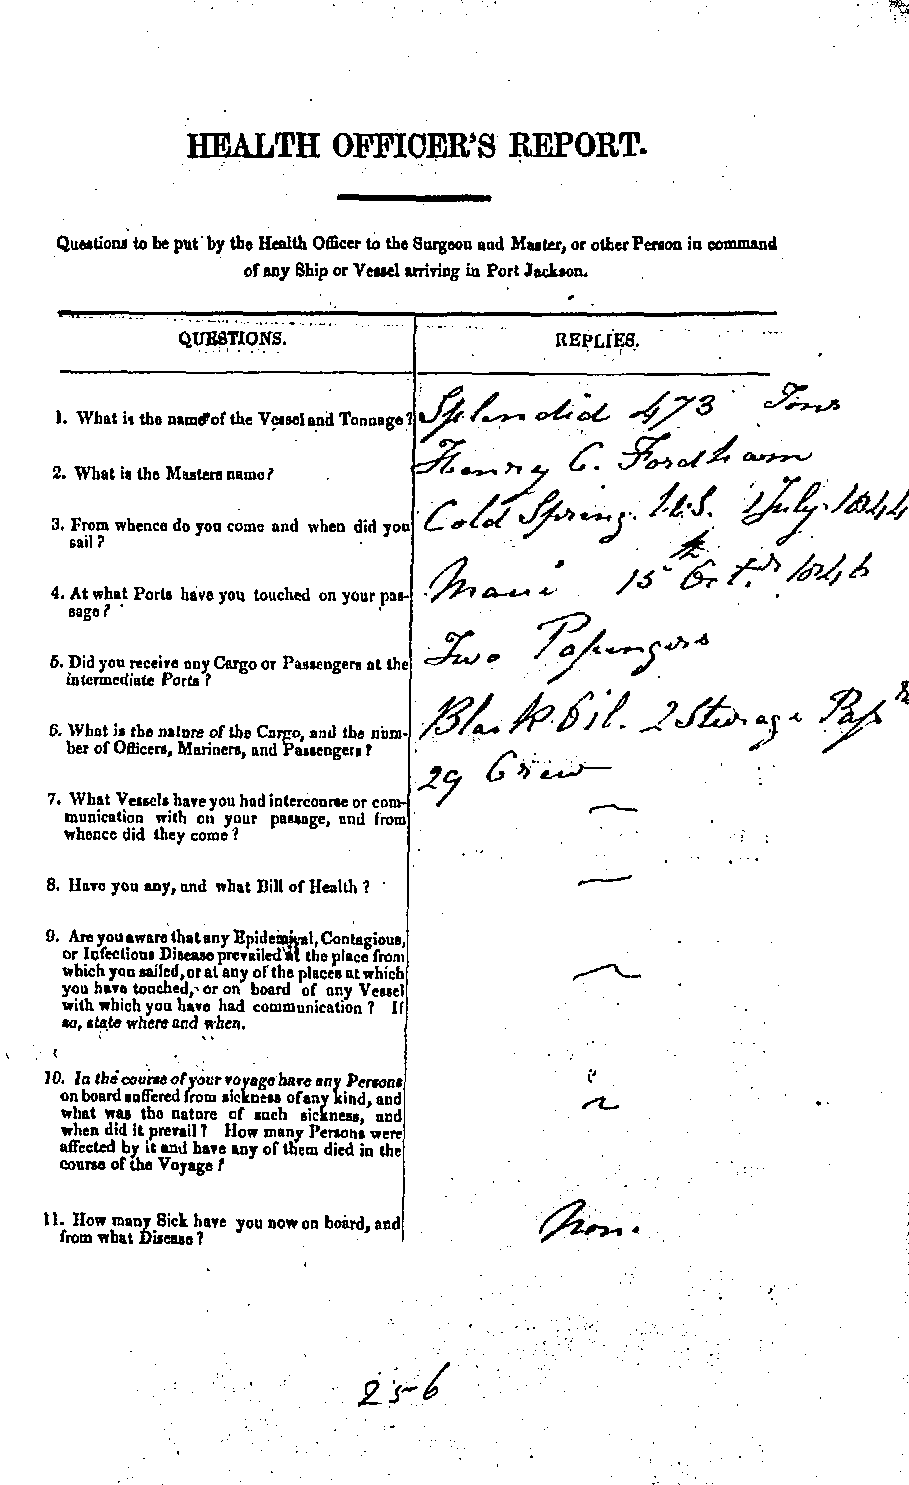 HEALTH OFFICER'S REPORT.
Questions to be put by the Health Officer to the Surgeon and Master, or other Person in command
of any Ship or Vessel arriving in Port Jackson.
QUESTIONS.
REPLIES.
1. What is the name of the Vessel and Tonnage?
Splendid 473 Tons
2. What is the Masters name?
Henry C. Fordham
3. From whence do you come and when did you
sail?
Cold Spring. U.S. 1 July. 1844
4. At what Ports have you touched on your pas-
sage?
Maui 15th Octr. 1846
5. Did you receive any Cargo or Passengers at the
intermediate Ports?
Two Passengers
6. What is the nature of the Cargo, and the num-
ber of Officers, Mariners, and Passengers?
Black Oil. 2 Sterage Passrs
29 Crew
7. What Vessels have you had intercourse or com-
munication with on your passage, and from
whence did they come?
—
8. Have you any, and what Bill of Health?
—
9. Are you aware that any Epidemical, Contagious,
or Infectious Disease prevailed at the place from
which you sailed, or at any of the places at which
you have touched, or on board of any Vessel
with which you have had communication? If
so, state where and when.
—
10. In the course of your voyage have any Persons
on board suffered from sickness of any kind, and
what was the nature of such sickness, and
when did it prevail? How many Persons were
affected by it and have any of them died in the
course of the Voyage?
—
11. How many Sick have you now on board, and
from what Disease?
None
256